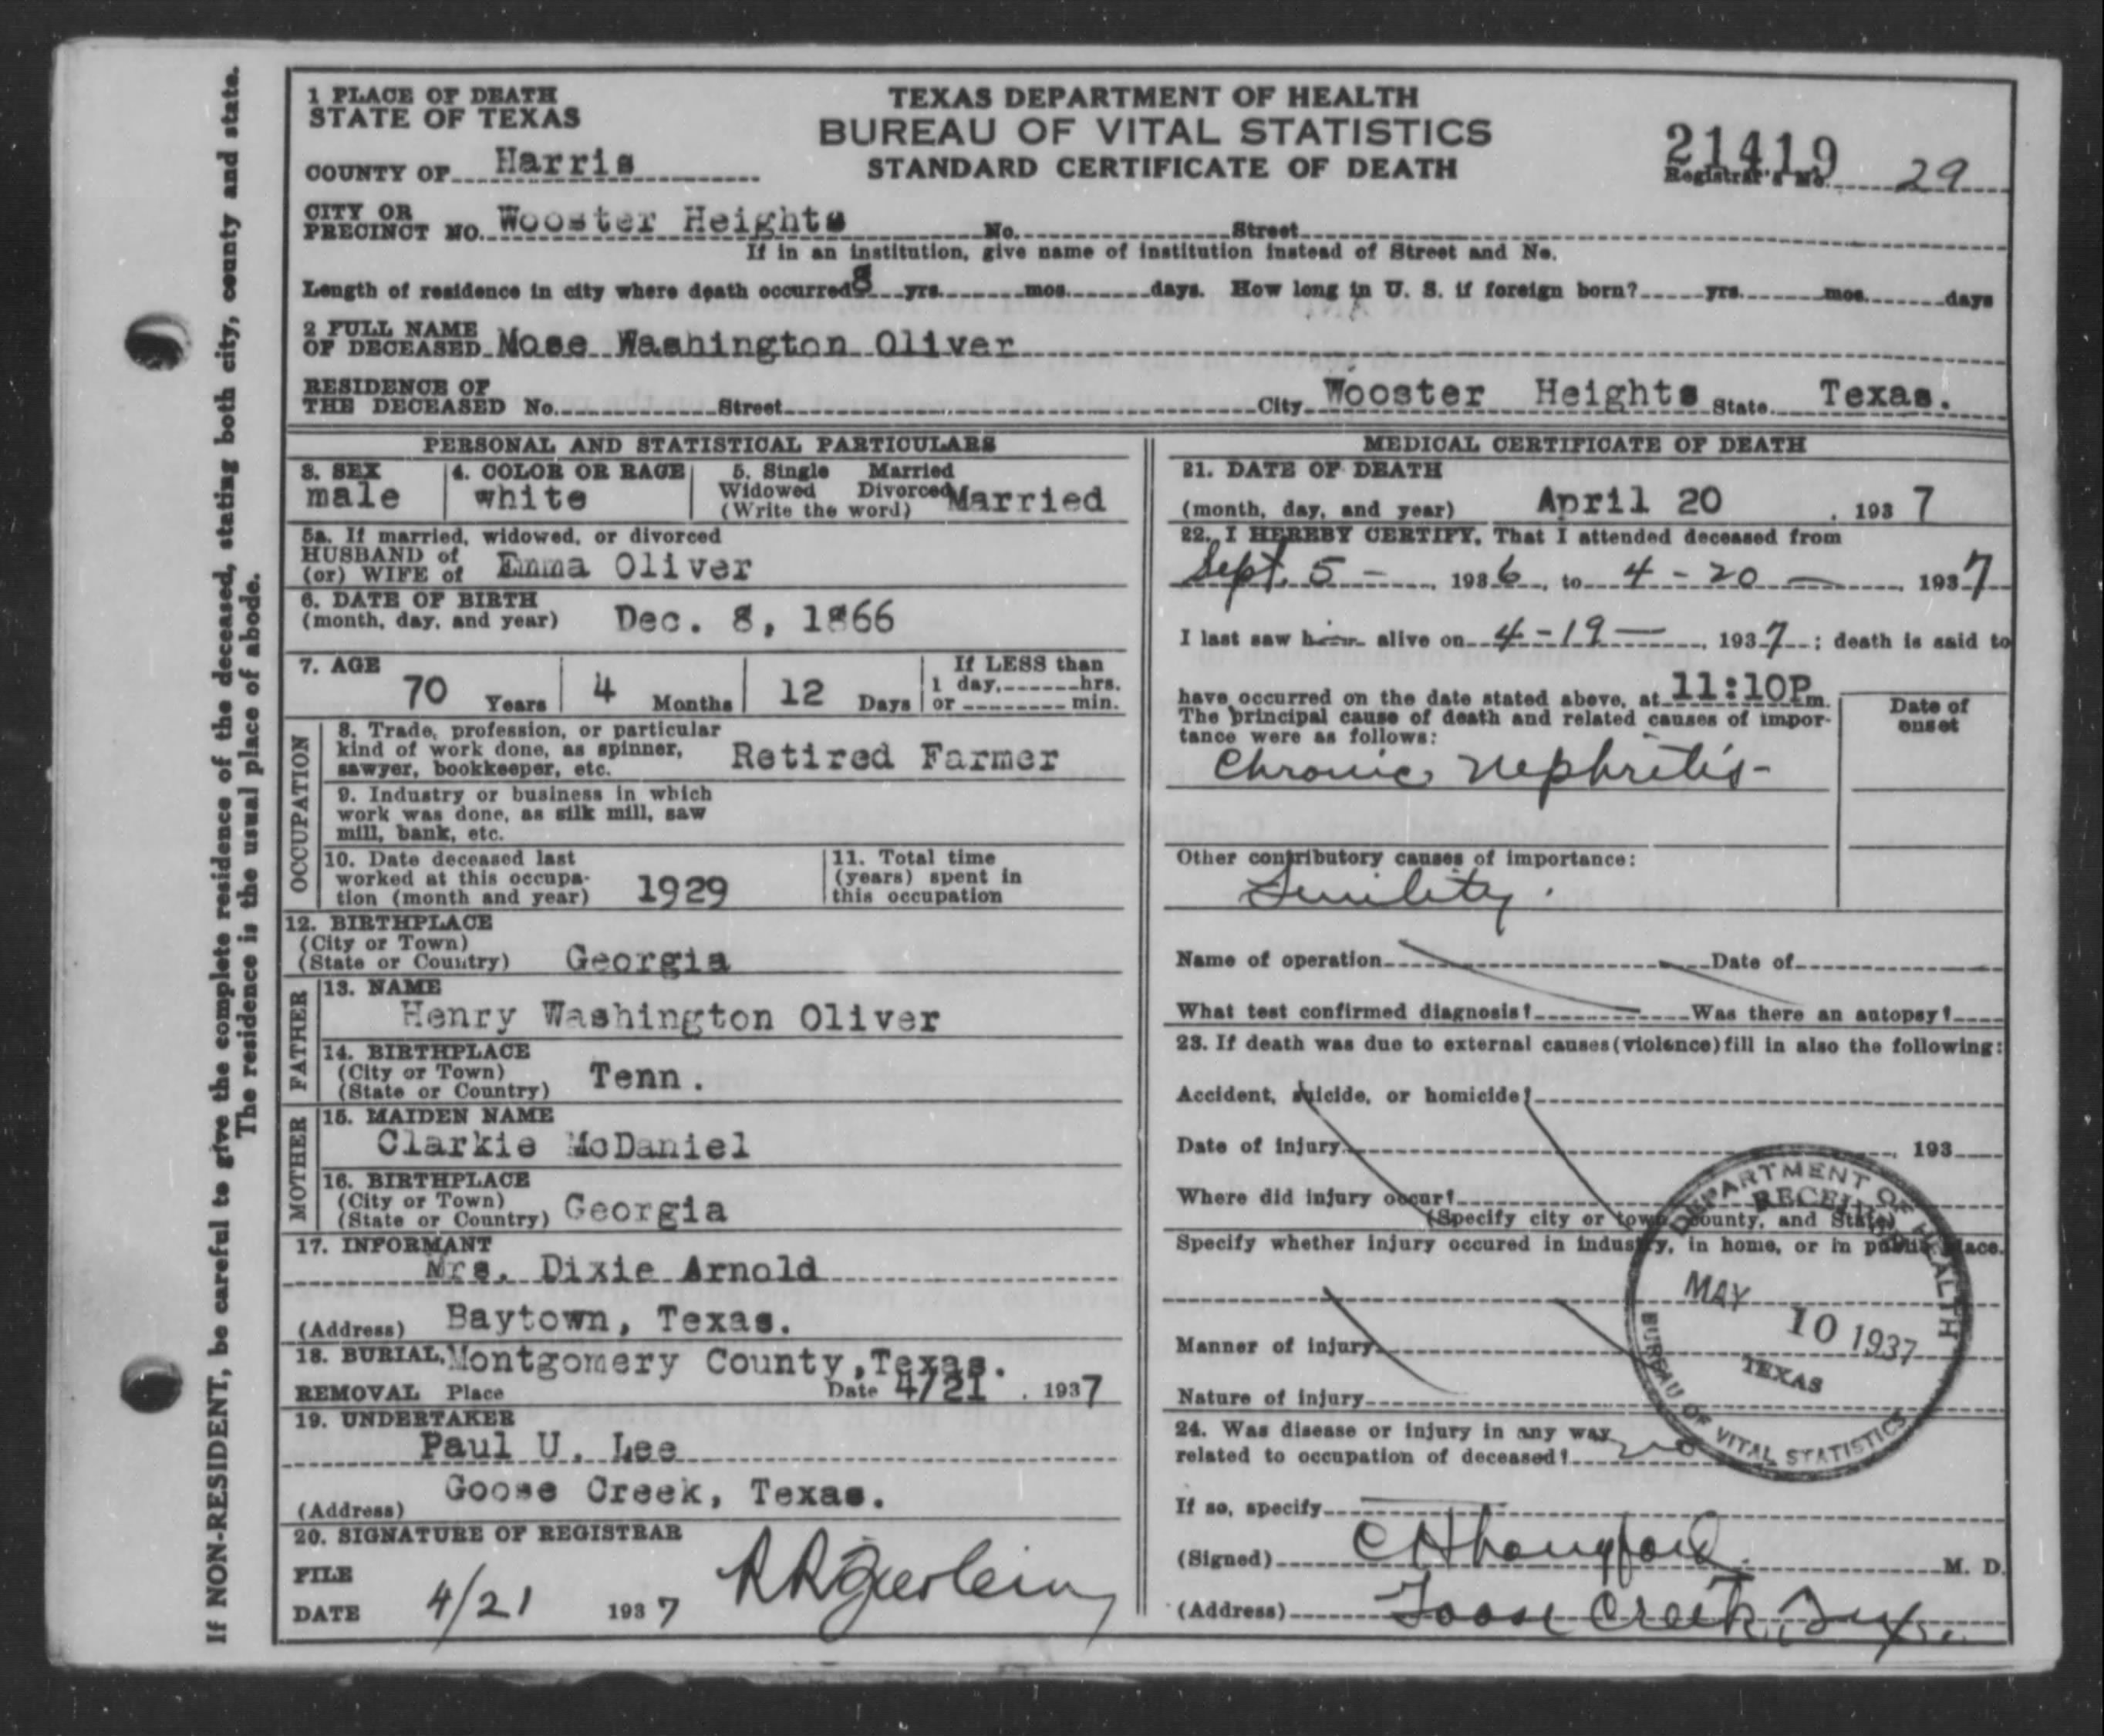 If NON-RESIDENT, be careful to give the complete residence of the deceased, stating both city, county and state.
The residence is the usual place of abode.
1 PLACE OF DEATH
STATE OF TEXAS
COUNTY OF Harris
TEXAS DEPARTMENT OF HEALTH
BUREAU OF VITAL STATISTICS
STANDARD CERTIFICATE OF DEATH
21419
Registrar's No. 29
CITY OR
PRECINCT NO. Wooster Heights No. Street
If in an institution, give name of institution instead of Street and No.
Length of residence in city where death occurred 8 yrs. mos. days. How long in U. S. if foreign born? yrs. mos. days
2 FULL NAME
OF DECEASED Mose Washington Oliver
RESIDENCE OF
THE DECEASED No. Street City Wooster Heights State Texas.
PERSONAL AND STATISTICAL PARTICULARS
3. SEX
male
4. COLOR OR RACE
white
5. Single Married
Widowed Divorced
(Write the word) Married
5a. If married, widowed, or divorced
HUSBAND of
(or) WIFE of Emma Oliver
6. DATE OF BIRTH
(month, day, and year) Dec. 8, 1866
7. AGE
70 Years 4 Months 12 Days
If LESS than
1 day, hrs.
or min.
OCCUPATION
8. Trade, profession, or particular
kind of work done, as spinner,
sawyer, bookkeeper, etc. Retired Farmer
9. Industry or business in which
work was done, as silk mill, saw
mill, bank, etc.
10. Date deceased last
worked at this occupa-
tion (month and year) 1929
11. Total time
(years) spent in
this occupation
12. BIRTHPLACE
(City or Town)
(State or Country) Georgia
FATHER
13. NAME
Henry Washington Oliver
14. BIRTHPLACE
(City or Town)
(State or Country) Tenn.
MOTHER
15. MAIDEN NAME
Clarkie McDaniel
16. BIRTHPLACE
(City or Town)
(State or Country) Georgia
17. INFORMANT
Mrs. Dixie Arnold
(Address) Baytown, Texas.
18. BURIAL, Montgomery County, Texas.
REMOVAL Place Date 4/21, 1937
19. UNDERTAKER
Paul U. Lee
(Address) Goose Creek, Texas.
20. SIGNATURE OF REGISTRAR
FILE
DATE 4/21 1937
MEDICAL CERTIFICATE OF DEATH
21. DATE OF DEATH
(month, day, and year) April 20, 1937
22. I HEREBY CERTIFY, That I attended deceased from
Sept. 5 -, 1936, to 4 - 20 -, 1937
I last saw him alive on 4-19 -, 1937; death is said to
have occurred on the date stated above, at 11:10P m.
The principal cause of death and related causes of impor-
tance were as follows:
Date of
onset
Chronic Nephritis-
Other contributory causes of importance:
Senility.
Name of operation Date of
What test confirmed diagnosis? Was there an autopsy?
23. If death was due to external causes (violence) fill in also the following:
Accident, suicide, or homicide?
Date of injury, 193
Where did injury occur?
(Specify city or town, county, and State)
Specify whether injury occured in industry, in home, or in public place.
Manner of injury
Nature of injury
24. Was disease or injury in any way
related to occupation of deceased? no
If so, specify
(Signed) M. D.
(Address) Goose Creek, Tex.
DEPARTMENT OF HEALTH
RECEIVED
MAY 10 1937
TEXAS
BUREAU OF VITAL STATISTICS